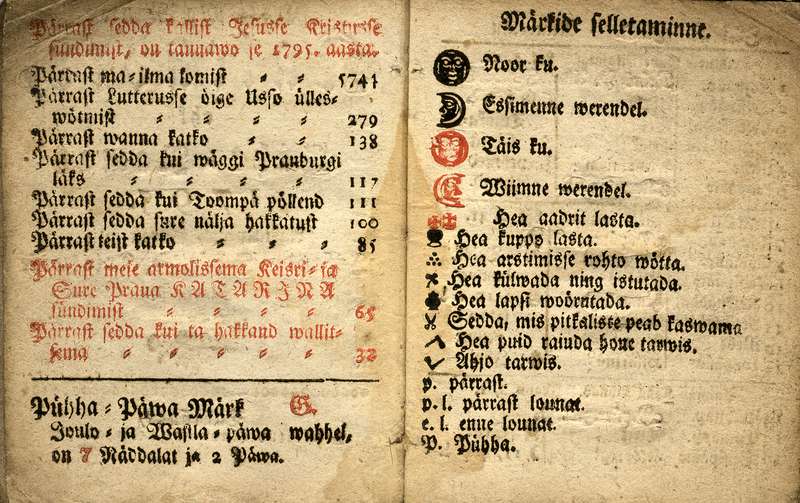 Pärrast sedda kallist Jesusse Kristusse
sündimist, on tännawo se 1795. aasta.
Pärrast ma-ilma lomist 5741
Pärrast Lutterusse öige Usso ülles-
wötmist 279
Pärrast wanna katko 138
Pärrast sedda kui wäggi Prauburgi
läks 117
Pärrast sedda kui Toompä pöllend 111
Pärrast sedda sure nälja hakkatust 100
Pärrast teist katko 85
Pärrast meie armolissema Keisri- ja
Sure Praua KATARINA
sündimist 65
Pärrast sedda kui ta hakkand wallit-
sema 32
Pühha-Päwa Märk G.
Joulo- ja Wastla-päwa wahhel,
on 7 Näddalat ja 2 Päwa.
Märkide selletaminne.
Noor ku.
Essimenne werendel.
Täis ku.
Wiimne werendel.
Hea aadrit lasta.
Hea kuppo lasta.
Hea arstimisse rohto wötta.
Hea külwada ning istutada.
Hea lapsi woörutada.
Sedda, mis pitkaliste peab kaswama
Hea puid raiuda hone tarwis.
Ahjo tarwis.
p. pärrast.
p. l. pärrast lounat.
e. l. enne lounat.
P. Pühha.